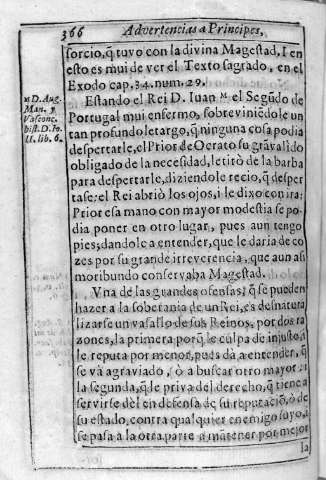 366 Advertencias a Principes,
sorcio, q̃ tuvo con la divina Magestad, I en
esto es mui de ver el Texto sagrado, en el
Exodo cap. 34. num. 29.
Estando el Rei D. Iuan ᴹ el Segũdo de
Portugal mui enfermo, sobreviniẽdole un
tan profundo letargo, q̃ ninguna cosa podia
despertarle, el Prior de Ocrato su gra valido
obligado de la necesidad, le tirò de la barba
para despertarle, diziendole recio, q̃ desper
tase: el Rei abriò los ojos, i le dixo con ira:
Prior esa mano con mayor modestia se po-
dia poner en otro lugar, pues aun tengo
pies; dandole a entender, que le daria de co
zes por su grande irreverencia, que aun asi
moribundo conservaba Magestad.
Vna de las grandes ofensas, q̃ se pueden
hazer a la soberania de un Rei, es desnatura
lizarse un vasallo de sus Reinos, por dos ra
zones, la primera porq̃ le culpa de injusto, i
le reputa por menos, pues dà a entender, q̃
se và agraviado, ò a buscar otro mayor: i
la segunda, q̃ le priva del derecho, q̃ tiene a
servirse del en defensa de su reputaciõ, ò de
su estado, contra qualquier enemigo suyo, i
se pasa a la otra parte a mãtener por mejor
la
ᴹ D. Aug.
Man. y
Vasconc.
hist. D. Io.
II. lib. 6.